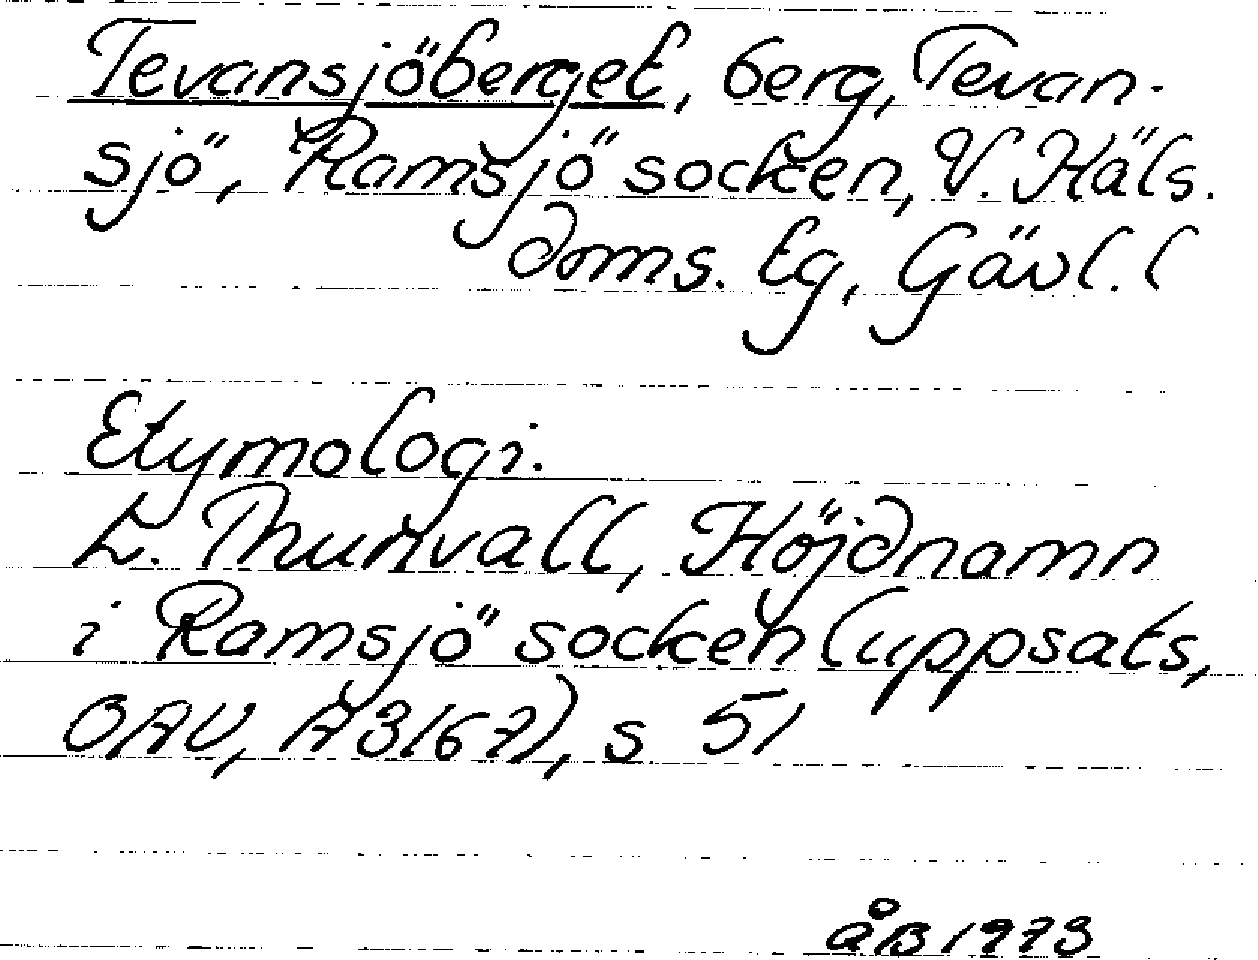 Tevansjöberget, berg, Tevan-
sjö, Ramsjö socken, V. Häls.
doms. tg, Gävl. l
Etymologi.
L. Thunvall, Höjdnamn
i Ramsjö socken (uppsats,
OAU, A3167), s 51
åB 1973